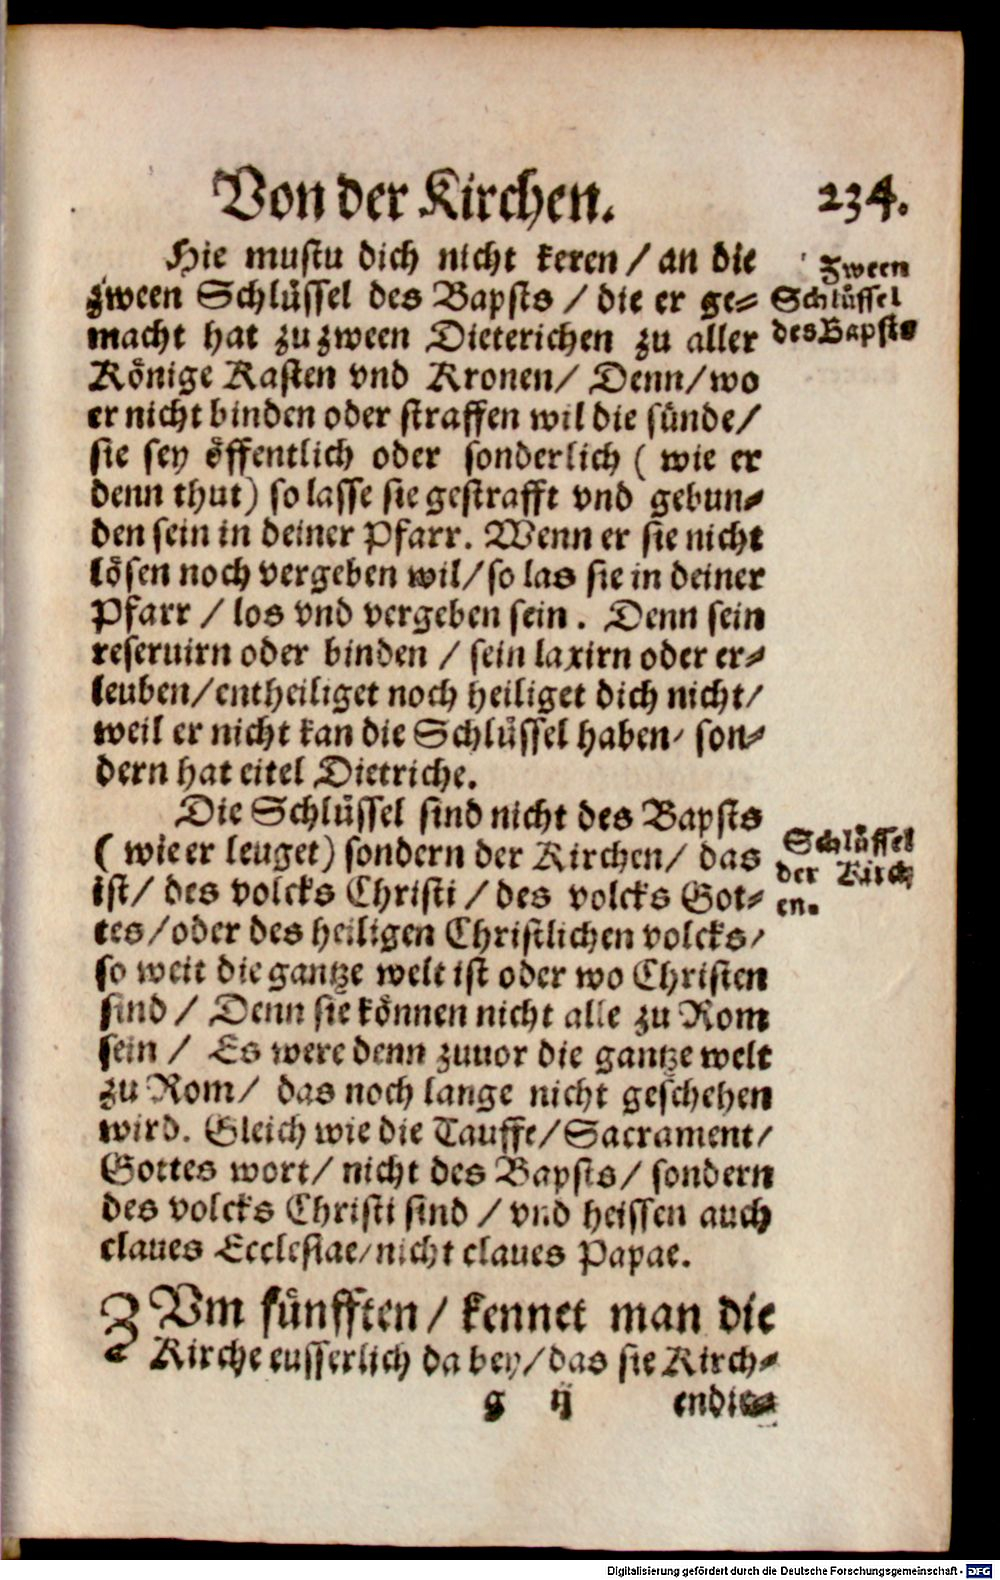 Von der Kirchen. 234.
Hie mustu dich nicht keren / an die
zween Schlüssel des Bapsts / die er ge⸗
macht hat zu zween Dieterichen zu aller
Könige Kasten vnd Kronen / Denn / wo
er nicht binden oder straffen wil die sünde /
sie sey öffentlich oder sonderlich ( wie er
denn thut ) so lasse sie gestrafft vnd gebun⸗
den sein in deiner Pfarr. Wenn er sie nicht
lösen noch vergeben wil / so las sie in deiner
Pfarr / los vnd vergeben sein . Denn sein
reseruirn oder binden / sein laxirn oder er⸗
leuben / entheiliget noch heiliget dich nicht /
weil er nicht kan die Schlüssel haben / son⸗
dern hat eitel Dietriche.
Zween
Schlüssel
des Bapsts
Die Schlüssel sind nicht des Bapsts
( wie er leuget ) sondern der Kirchen / das
ist / des volcks Christi / des volcks Got⸗
tes / oder des heiligen Christlichen volcks /
so weit die gantze welt ist oder wo Christen
sind / Denn sie können nicht alle zu Rom
sein / Es were denn zuuor die gantze welt
zu Rom / das noch lange nicht geschehen
wird. Gleich wie die Tauffe / Sacrament /
Gottes wort / nicht des Bapsts / sondern
des volcks Christi sind / vnd heissen auch
claues Ecclesiae / nicht claues Papae.
Schlüssel
der Kirch
en.
ZVm fünfften / kennet man die
Kirche eusserlich da bey / das sie Kirch⸗
g ij endie⸗
Digitalisierung gefördert durch die Deutsche Forschungsgemeinschaft - DFG